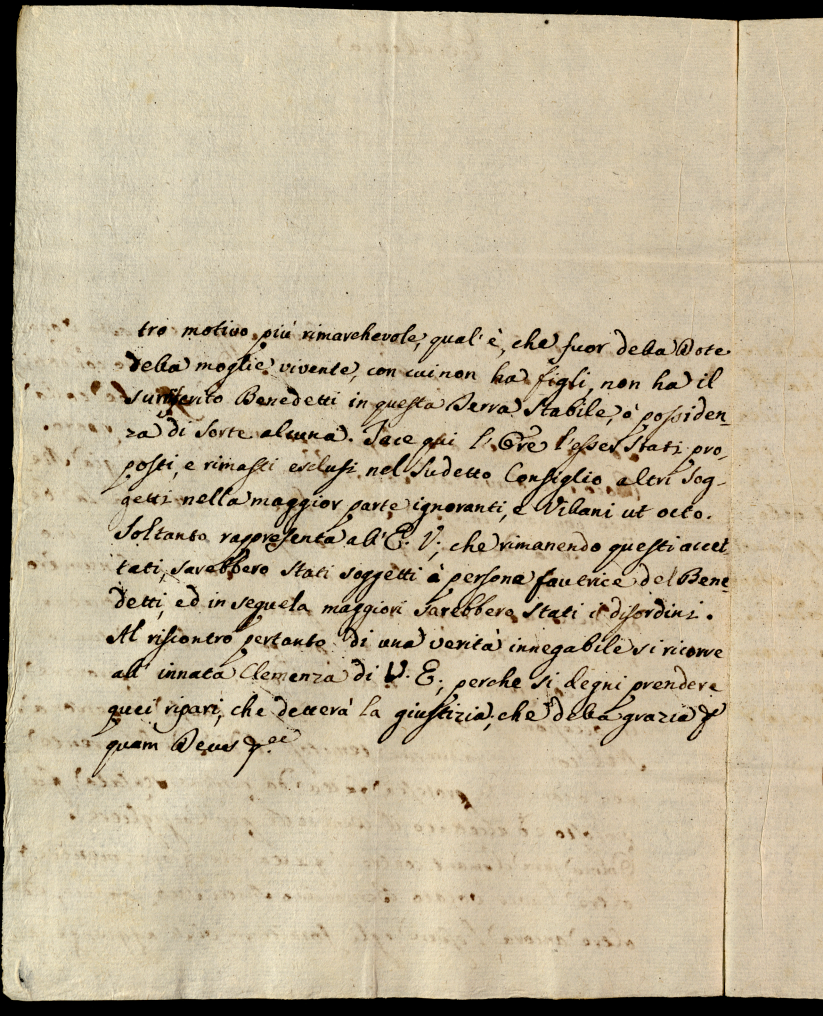 tro motivo più rimarchevole, qual'è, che fuor della Dote
della moglie vivente, con cui non ha figli, non ha il
surriferito Benedetti in questa Terra Stabile, ò possiden-
za di sorte alcuna. Tace qui l'Ore l'esser stati pro-
posti, e rimasti esclusi nel sudetto Consiglio altri sog-
getti nella maggior parte ignoranti, e Villani ut octo.
Soltanto rappresenta all'E. V., che rimanendo questi accet
tati, sarebbero stati soggetti à persona fautrice del Bene-
detti, ed in seguela maggiori sarebbero stati i disordini.
Al riscontro pertanto di una verità innegabile si ricorre
all'innata Clemenza di V. E., perche si degni prendere
quei ripari, che detterà la giustizia, che della grazia &
quam Deus &